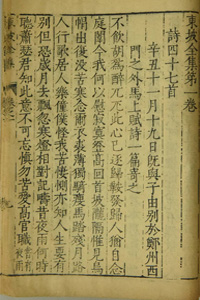 東坡全集第一卷
詩四十七首
辛丑十一月十九日既與子由別於鄭州西
門之外馬上賦詩一篇寄之
不飲胡為醉兀兀此心已逐歸鞍發歸人猶自念
庭闈今我何以慰寂寞登高回首坡隴隔惟見烏
帽出復沒苦寒念爾衣裘薄獨騎瘦馬踏殘月路
人行歌居人樂僮僕怪我苦悽惻亦知人生要有
別但恐歲月去飄忽寒燈相對記疇昔夜雨何時
聽蕭瑟君知此意不可忘慎勿苦愛高官職